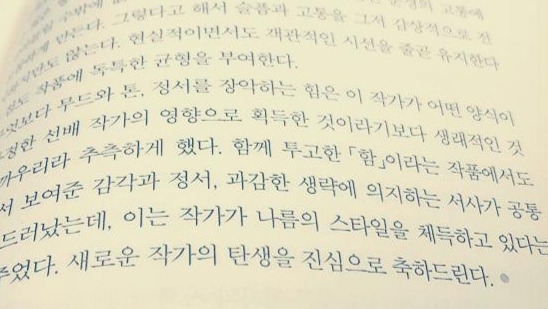 수밖에 고통에
만든다. 그렇다고 해서 슬픔과 고통을 그저 감상적으로 전
않는다. 현실적이면서도 객관적인 시선을 줄곧 유지한다
작품에 독특한 균형을 부여한다.
무드와 톤, 정서를 장악하는 힘은 이 작가가 어떤 양식이
선배 작가의 영향으로 획득한 것이라기보다 생래적인 것
까우리라 추측하게 했다. 함께 투고한 「함」이라는 작품에서도
서 보여준 감각과 정서, 과감한 생략에 의지하는 서사가 공통
드러났는데, 이는 작가가 나름의 스타일을 체득하고 있다는
주었다. 새로운 작가의 탄생을 진심으로 축하드린다.